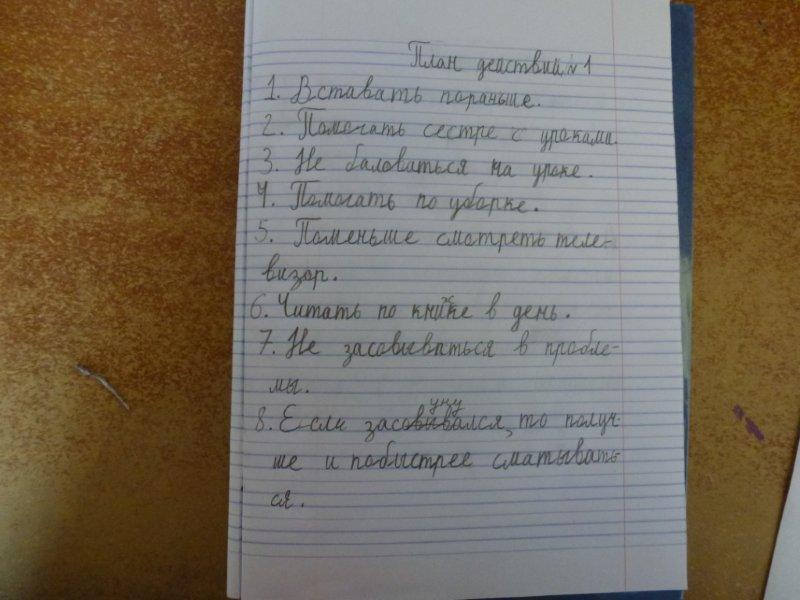 План действий №1
1. Вставать пораньше.
2. Помогать сестре с уроками.
3. Не баловаться на уроке.
4. Помогать по уборке.
5. Поменьше смотреть теле-
визор.
6. Читать по книжке в день.
7. Не засовываться в пробле-
мы.
уну
8. Если засовывался, то получ-
ше и побыстрее сматывать-
ся.